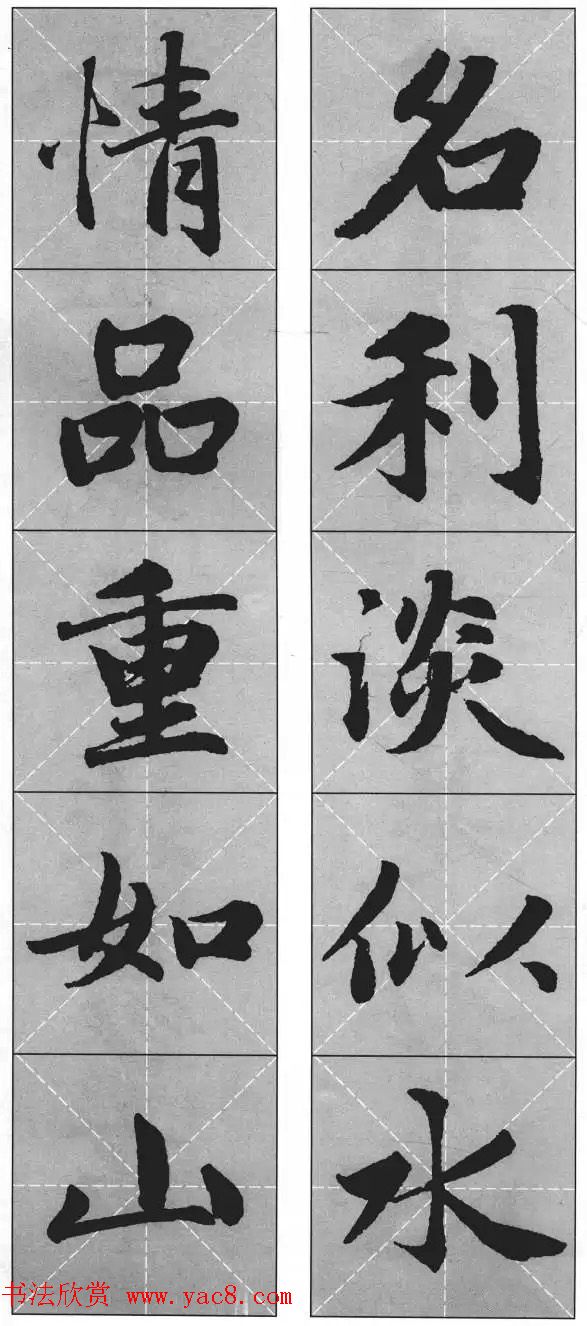 名利淡似水
情品重如山
书法欣赏 www.yac8.com